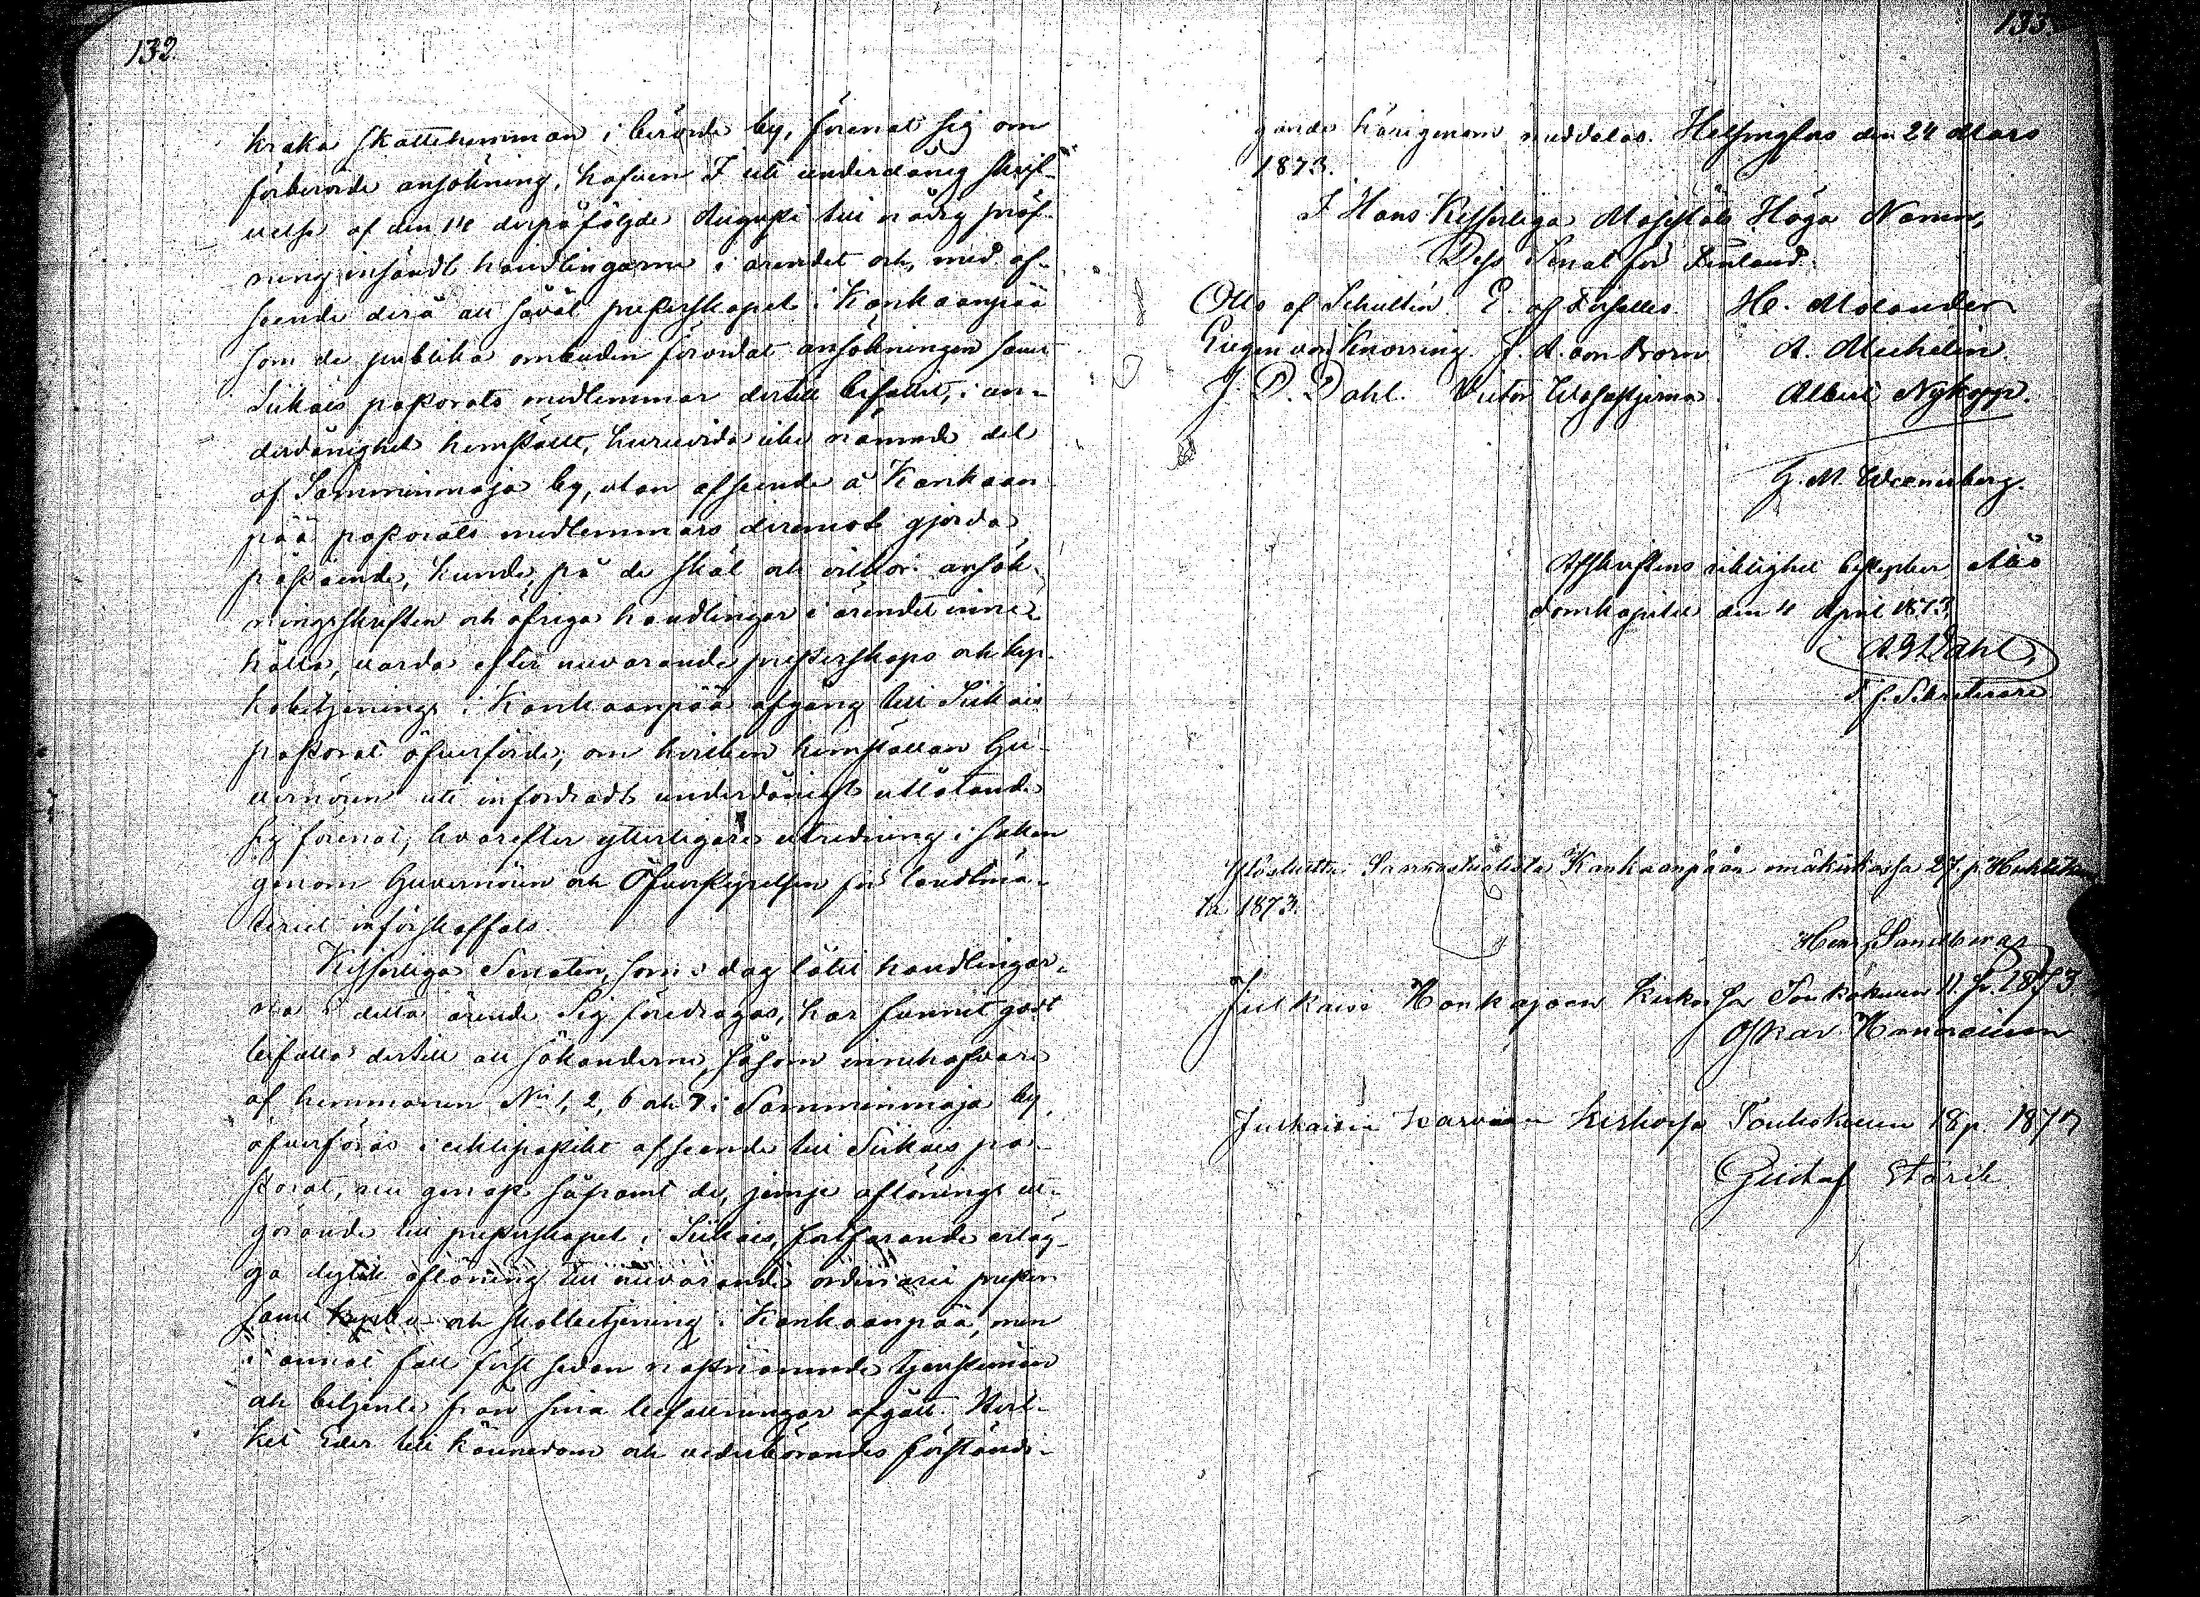 132.
kraka skattehemman i berörde by, förenat sig om
förberörde ansökning, hafven I uti underdånig skrif-
velse af den 14 derpåföljde Augusti till nådig pröf-
ning insändt handlingarne i ärendet och, med af-
seende derå att såväl presterskapet i Kankaanpää
som de publika ombuden förordat ansökningen samt
Siikais pastorats medlemmar dertill bifallit, i un-
derdånighet hemställt, huruvida icke nämnde del
af Samminmaja by, utan afseende å Kankaan-
pää pastorats medlemmars deremot gjorda
påstående, kunde, på de skäl och vilkor ansök-
ningsskriften och öfriga handlingar i ärendet inne-
hålla, varda efter nuvarande presterskaps och kyr-
kobetjenings i Kankaanpää afgång till Siikais
pastorat öfverförde; om hvilken hemställan Gu-
vernören uti infordradt underdånigt utlåtande
sig förenat; hvarefter ytterligare utredning i saken
genom Guvernören och Öfverstyrelsen för landtmä-
teriet införskaffats.
Kejserliga Senaten, som i dag låtit handlingar-
na i detta ärende Sig föredragas, har funnit godt
bifalla dertill att sökanderne, såsom innehafvare
af hemmanen No 1, 2, 6 och 7 i Samminmaja by,
öfverföras i ecklesiastikt afseende till Siikais pa-
storat, nu genast såframt de, jemte aflönings ut-
görande till presterskapet i Siikais, fortfarande erläg-
ga dylik aflöning till nuvarande ordinarie prester
samt kyrko- och skolbetjening i Kankaanpää, men
i annat fall först sedan nästnämnde tjenstemän
och betjente från sina befattningar afgått. Hvil-
ket Eder till kännedom och vederbörandes förständi-
133.
gande härigenom meddelas. Helsingfors den 24 Mars
1873.
I Hans Kejserliga Majestäts Höga Namn,
Dess Senat för Finland.
Otto af Schultén. E. af Forselles. H. Molander
Eugen von Knorring. J. A. von Born A. Mechelin.
J. D. Dahl. Victor Wafvstjerna. Albert Nykopp.
G. M. Wænerberg.
Afskriftens riktighet bestyrker, Åbo
domkapitel den 4 April 1873,
A. G. Dahl,
T. f. Sekreterare
Ylöskuttu Saarnastuolista Kankaanpään emäkirkossa 27. p. Huhtikuu-
ta 1873.
Henr. Sandberg
Julkaisi Honkajoen kirkossa Toukokuun 11. p. 1873
Oskar Hanoninen
Julkaisi Karvian kirkossa Toukokuun 18 p. 1873
Gustaf Stårck